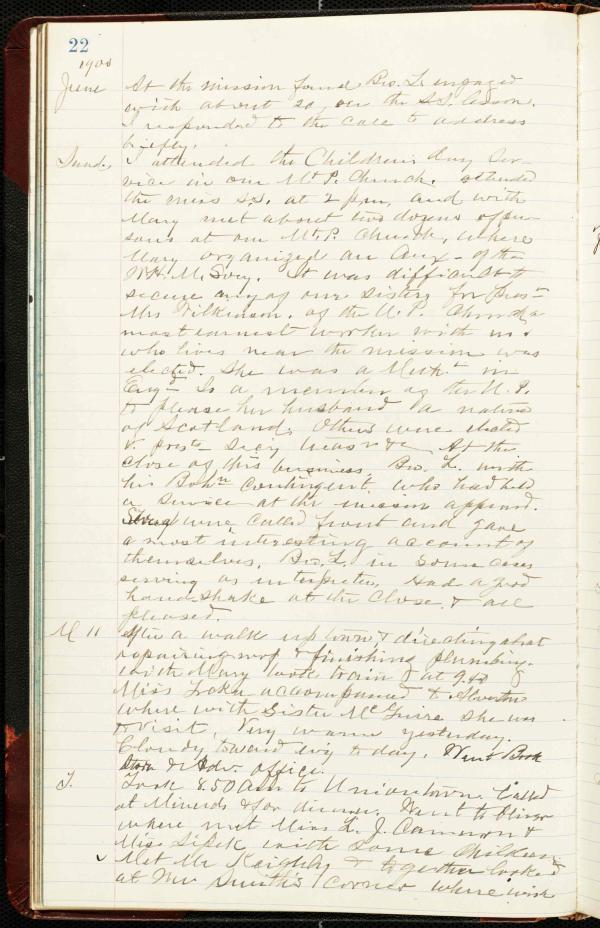 22
1900
June At the mission found Bro. L. engaged
with about 20 over the S.S. lesson.
I responded to the call to address
briefly.
Sund. I attended the Children's Day Ser-
vice in our Mt. P. Church. attended
the miss S.S. at 2 p.m. and with
Mary met about two dozens of per-
sons at our Mt. P. Church, where
Mary organized an Aux- of the
W.H.M. Socy. It was difficult to
secure any of our sisters for Prest
Mrs Wilkinson, of the U.P. Church a
most earnest worker with us &
who lives near the mission was
elected. She was a Metht in
Engd Is a member of the U.P.
to please her husband a native
of Scotland. Others were elected
V. prests Secy Treasr &c. At the
close of this business, Bro. L. with
his Bohn contingent who had held
a service at the mission appeard.
Several were called front and gave
a most interesting account of
themselves, Bro. L. in some cases
serving as interpreter. Had a good
hand-shake at the close & all
pleased.
M 11 After a walk up town & directing about
repairing roof & finishing plumbing.
with Mary took train at 9.40
Miss accompanied to
where with Sister McGuire she was
to visit, Very warm yesterday.
Cloudy toward evig to day. Went Book
Store & Adv. office.
T. Took 8.50 am to Uniontown. Called
at & for dinner. Went to Oliver
where met Miss L. J. Cameron &
Miss with some children
Met Mr Keighly & together looked
at Mr Smith's corner where wish